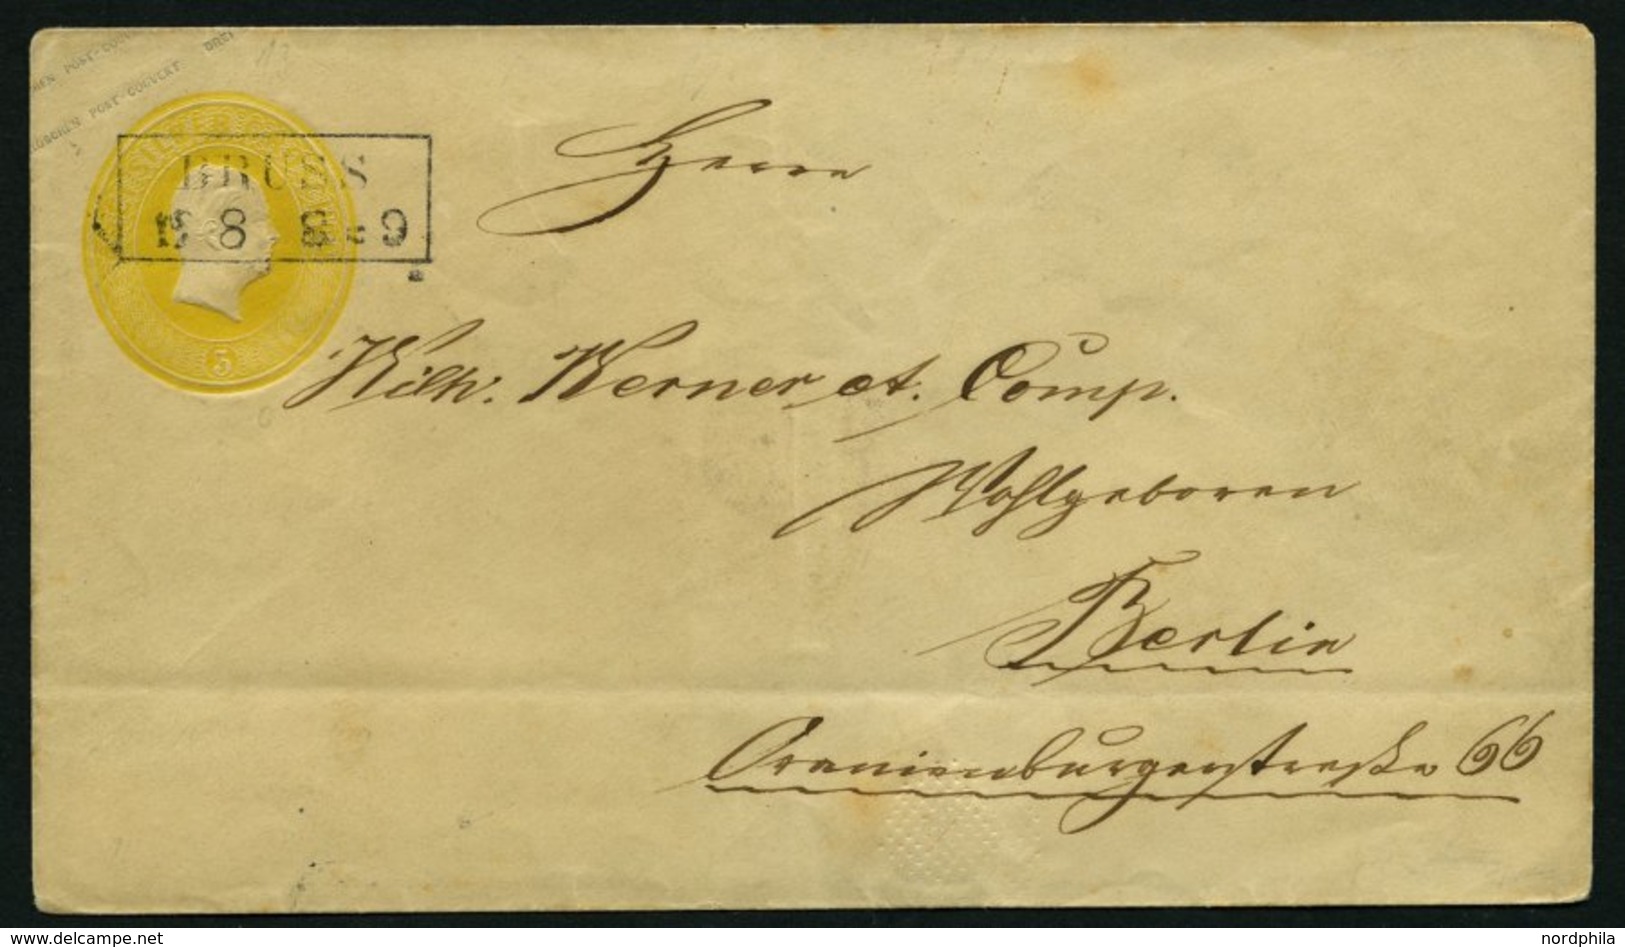 POST-COUVERT DREI
POST-COUVERT
BRUSS
8 8=9
5
Herrn
Wilh. Werner et. Comp.
Wohlgeboren
Berlin
Oranienburgerstraße 66
nordphila